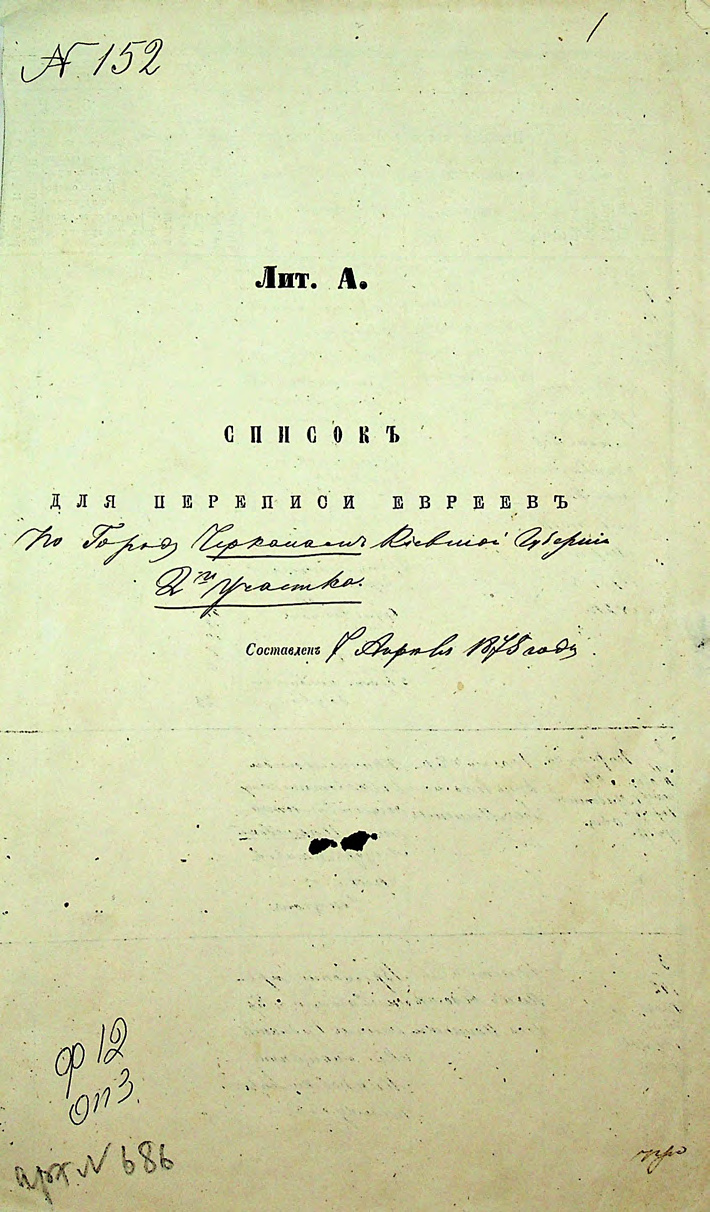 № 152
1
Лит. А.
СПИСОКЪ
ДЛЯ ПЕРЕПИСИ ЕВРЕЕВЪ
по Городу Черкасамъ Кіевской Губерніи
2го участка.
Составленъ Апреля 1875 года
ф 12
оп 3
арх № 686